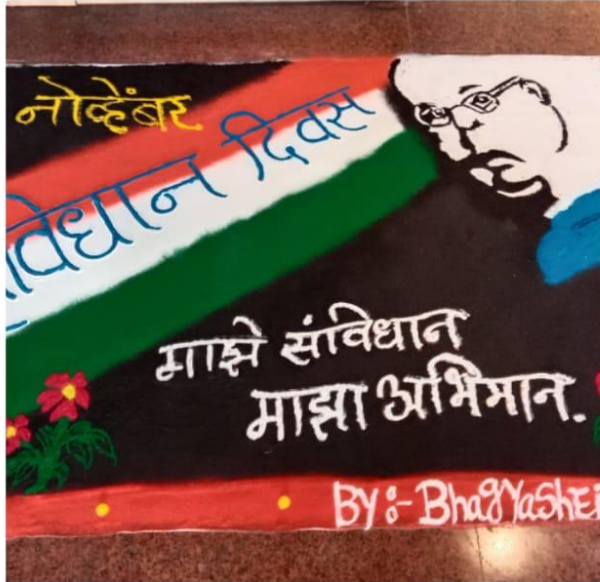 नोव्हेंबर
विधान दिवस
माझे संविधान
माझा अभिमान.
BY:- BhagyaShEi